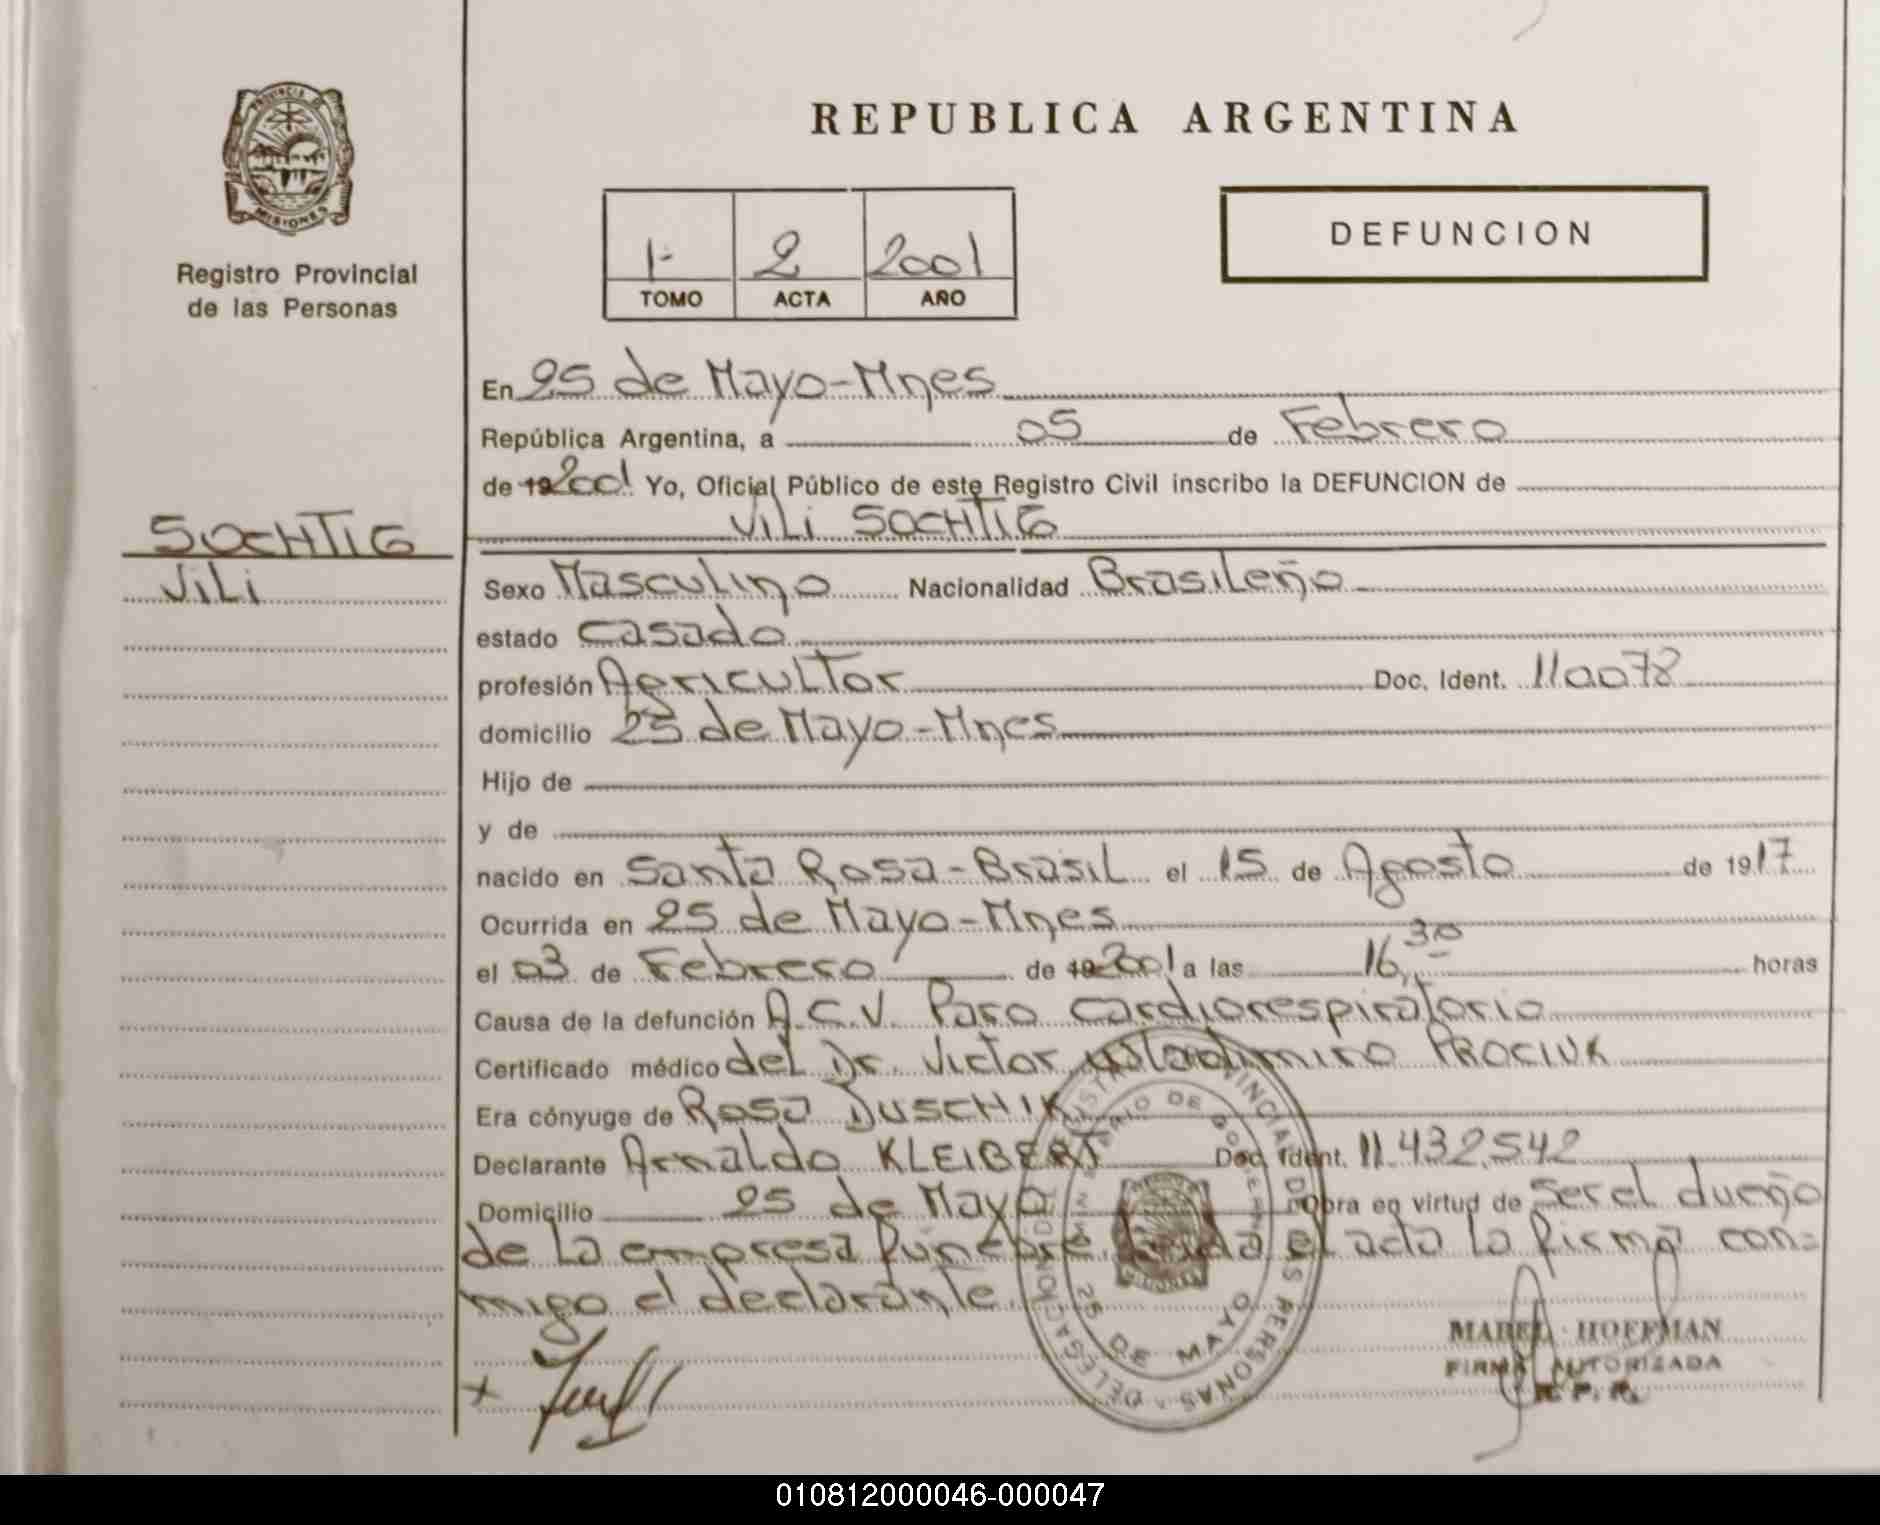 PROVINCIA DE
MISIONES
Registro Provincial
de las Personas
REPUBLICA ARGENTINA
1- 2 2001
TOMO ACTA AÑO
DEFUNCION
En 25 de Mayo-Mnes
República Argentina, a 05 de Febrero
de 19 2001 Yo, Oficial Público de este Registro Civil inscribo la DEFUNCION de
ViLi SOCHTIG
SOCHTIG
ViLi
Sexo Masculino Nacionalidad Brasileño
estado Casado
profesión Agricultor Doc. Ident. 110078
domicilio 25 de Mayo-Mnes
Hijo de
y de
nacido en Santa Rosa-Brasil el 15 de Agosto de 1917
Ocurrida en 25 de Mayo-Mnes
el 03 de Febrero de 19 2001 a las 16,30 horas
Causa de la defunción A.C.V. Paro cardiorespiratorio
Certificado médico del Dr. Victor Wladimiro PROCIUK
Era cónyuge de Rosa DUSCHIK
Declarante Arnaldo KLEIBERT Doc. Ident. 11.432.542
Domicilio 25 de Mayo Obra en virtud de Ser el dueño
de la empresa fúnebre. Leida el acta la firma con=
migo el declarante.
DELEGACION 25 DE MAYO
MABEL HOFFMAN
FIRMA AUTORIZADA
R. P. P.
010812000046-000047